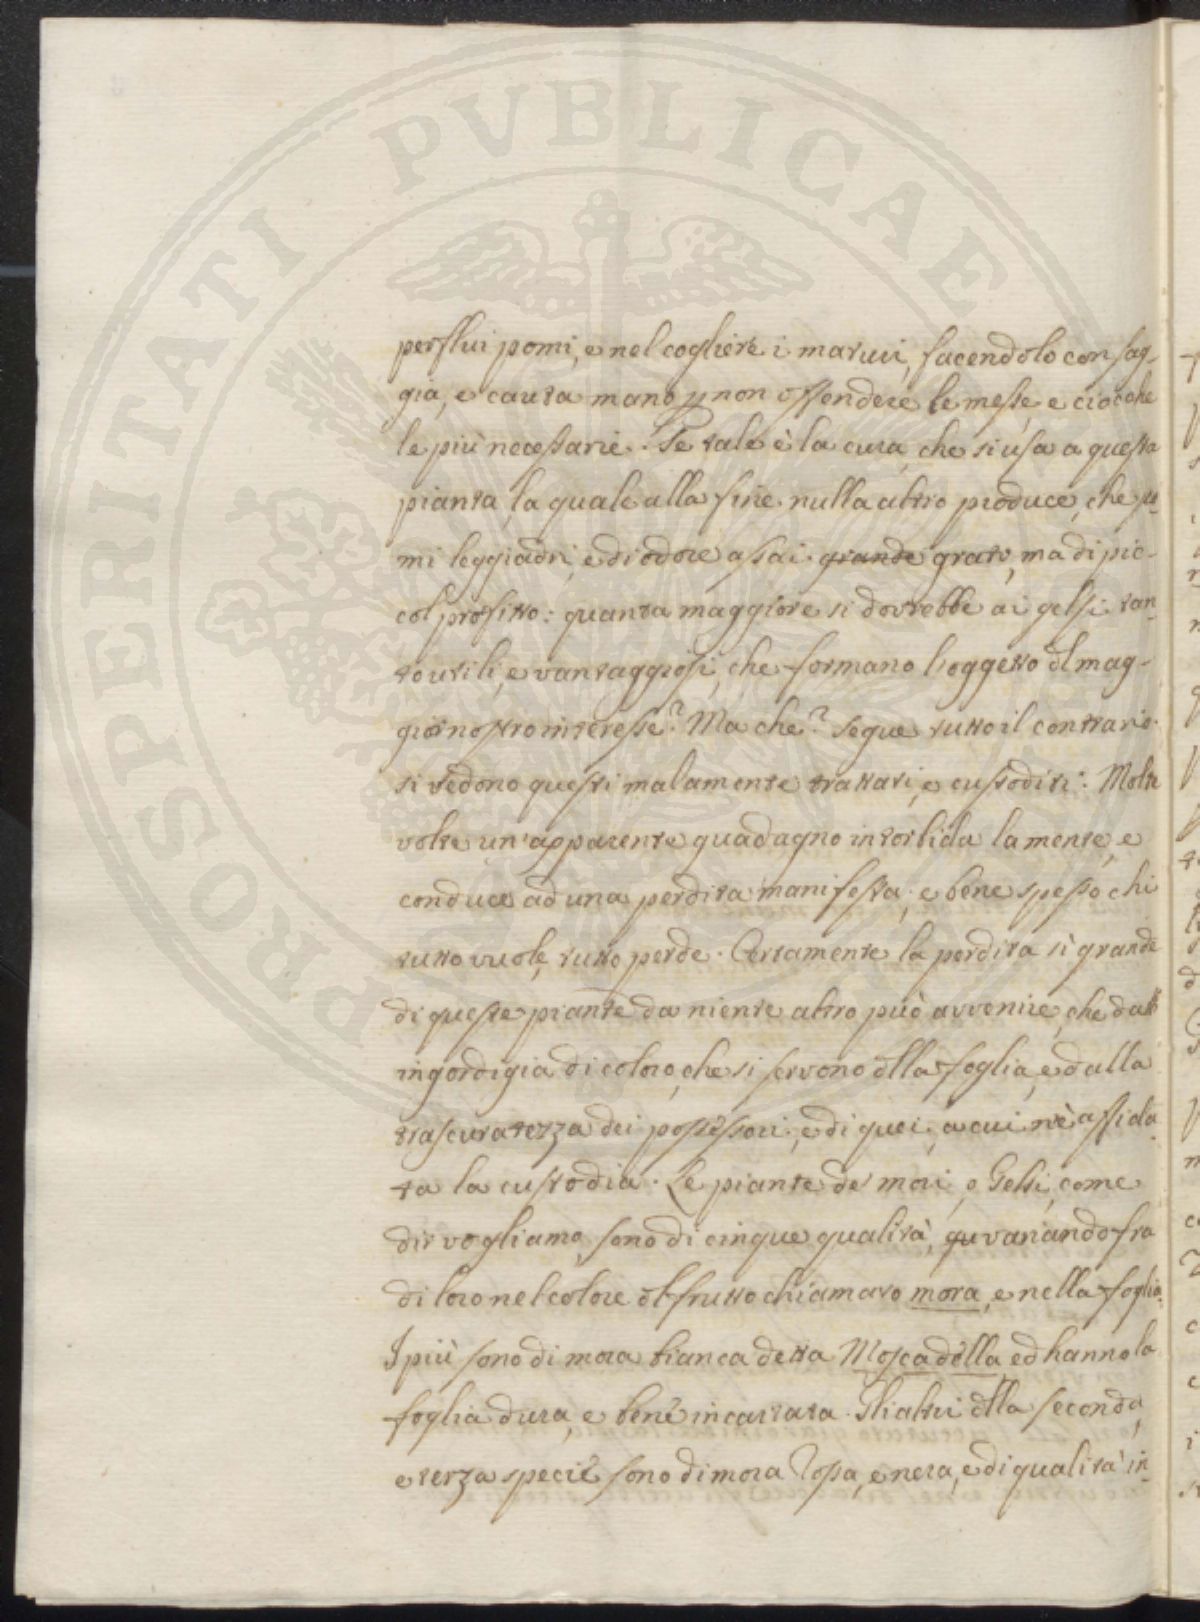 PROSPERITATI PVBLICAE
perflui pomi, e nel cogliere i maturi, facendolo con sag-
gia, e cauta mano p non offendere le messe, e ciocche
le più necessarie. Se tale è la cura, che si usa a questa
pianta, la quale alla fine nulla altro produce, che po-
mi leggiadri, e di odore assai grande grato, ma di pic-
col profitto: quanta maggiore si dovrebbe ai gelsi tan-
to utili, e vantaggiosi, che formano l'oggetto dl mag-
gior nostro interesse? Ma che? segue tutto il contrario.
si vedono questi malamente trattati, e custoditi: Molte
volte un'apparente guadagno intorbida la mente, e
conduce ad una perdita manifesta; e bene spesso chi
tutto vuole, tutto perde. Certamente la perdita sì grande
di queste piante da niente altro può avvenire, che dall'
ingordigia di coloro, che si servono dlla foglia, e dalla
trascuratezza dei possessori, e di quei, a cui n'è affida-
ta la custodia. Le piante de' mori, o Gelsi, come
dir vogliamo, sono di cinque qualità, qu variando fra
di loro nel colore dl frutto chiamato mora, e nella foglia.
I più sono di mora bianca detta Moscadella ed hanno la
foglia dura, e bene incartata. Gli altri dlla seconda,
e terza specie sono di mora Rosa, e nera, e di qualità in-